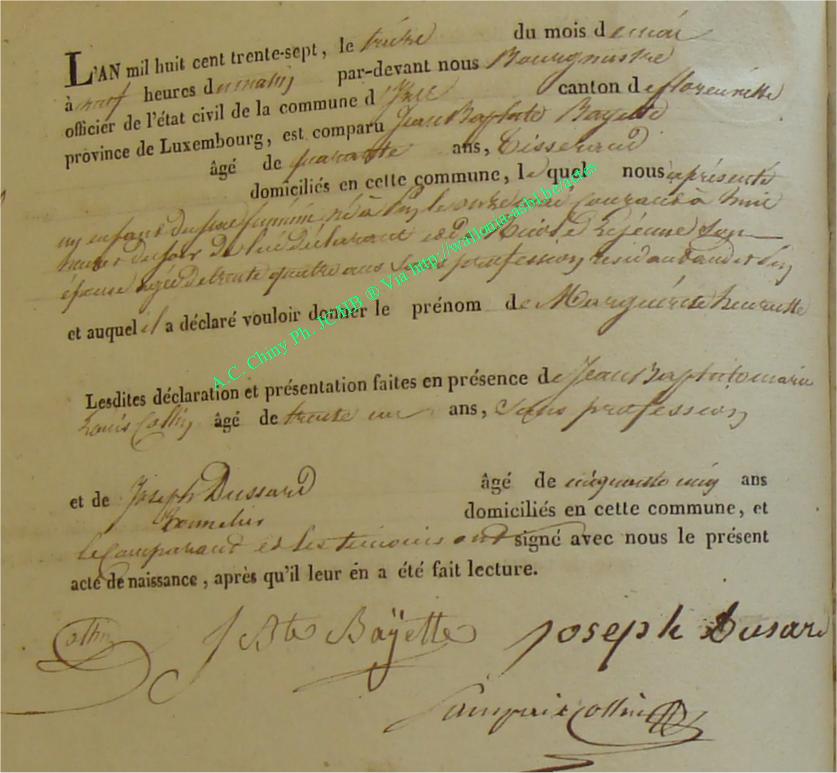 L'AN mil huit cent trente-sept, le treize du mois de mai
à neuf heures du matin par-devant nous Bourgmestre
officier de l'état civil de la commune d' canton de florenville
province de Luxembourg, est comparu Jean Baptiste Bayette
âgé de quarante ans, tisserand
domiciliés en cette commune, lequel nous a présenté
un enfant du sexe féminin né à le courant à huit
heures du soir de lui déclarant et de Lejeune son
épouse agée de trente quatre ans sans profession
et auquel il a déclaré vouloir donner le prénom de Marguerite henriette
Lesdites déclaration et présentation faites en présence de Jean Baptiste marie
Louis Collin âgé de trente un ans, sans profession
et de Joseph Dussard âgé de cinquante cinq ans
tonnelier domiciliés en cette commune, et
le comparant et les temoins ont signé avec nous le présent
acte de naissance, après qu'il leur en a été fait lecture.
Collin J Bte Baÿette Joseph Dusard
Collin
A.C. Chiny Ph. JCHIB ® Via http://wallonia-asbl.be/actes